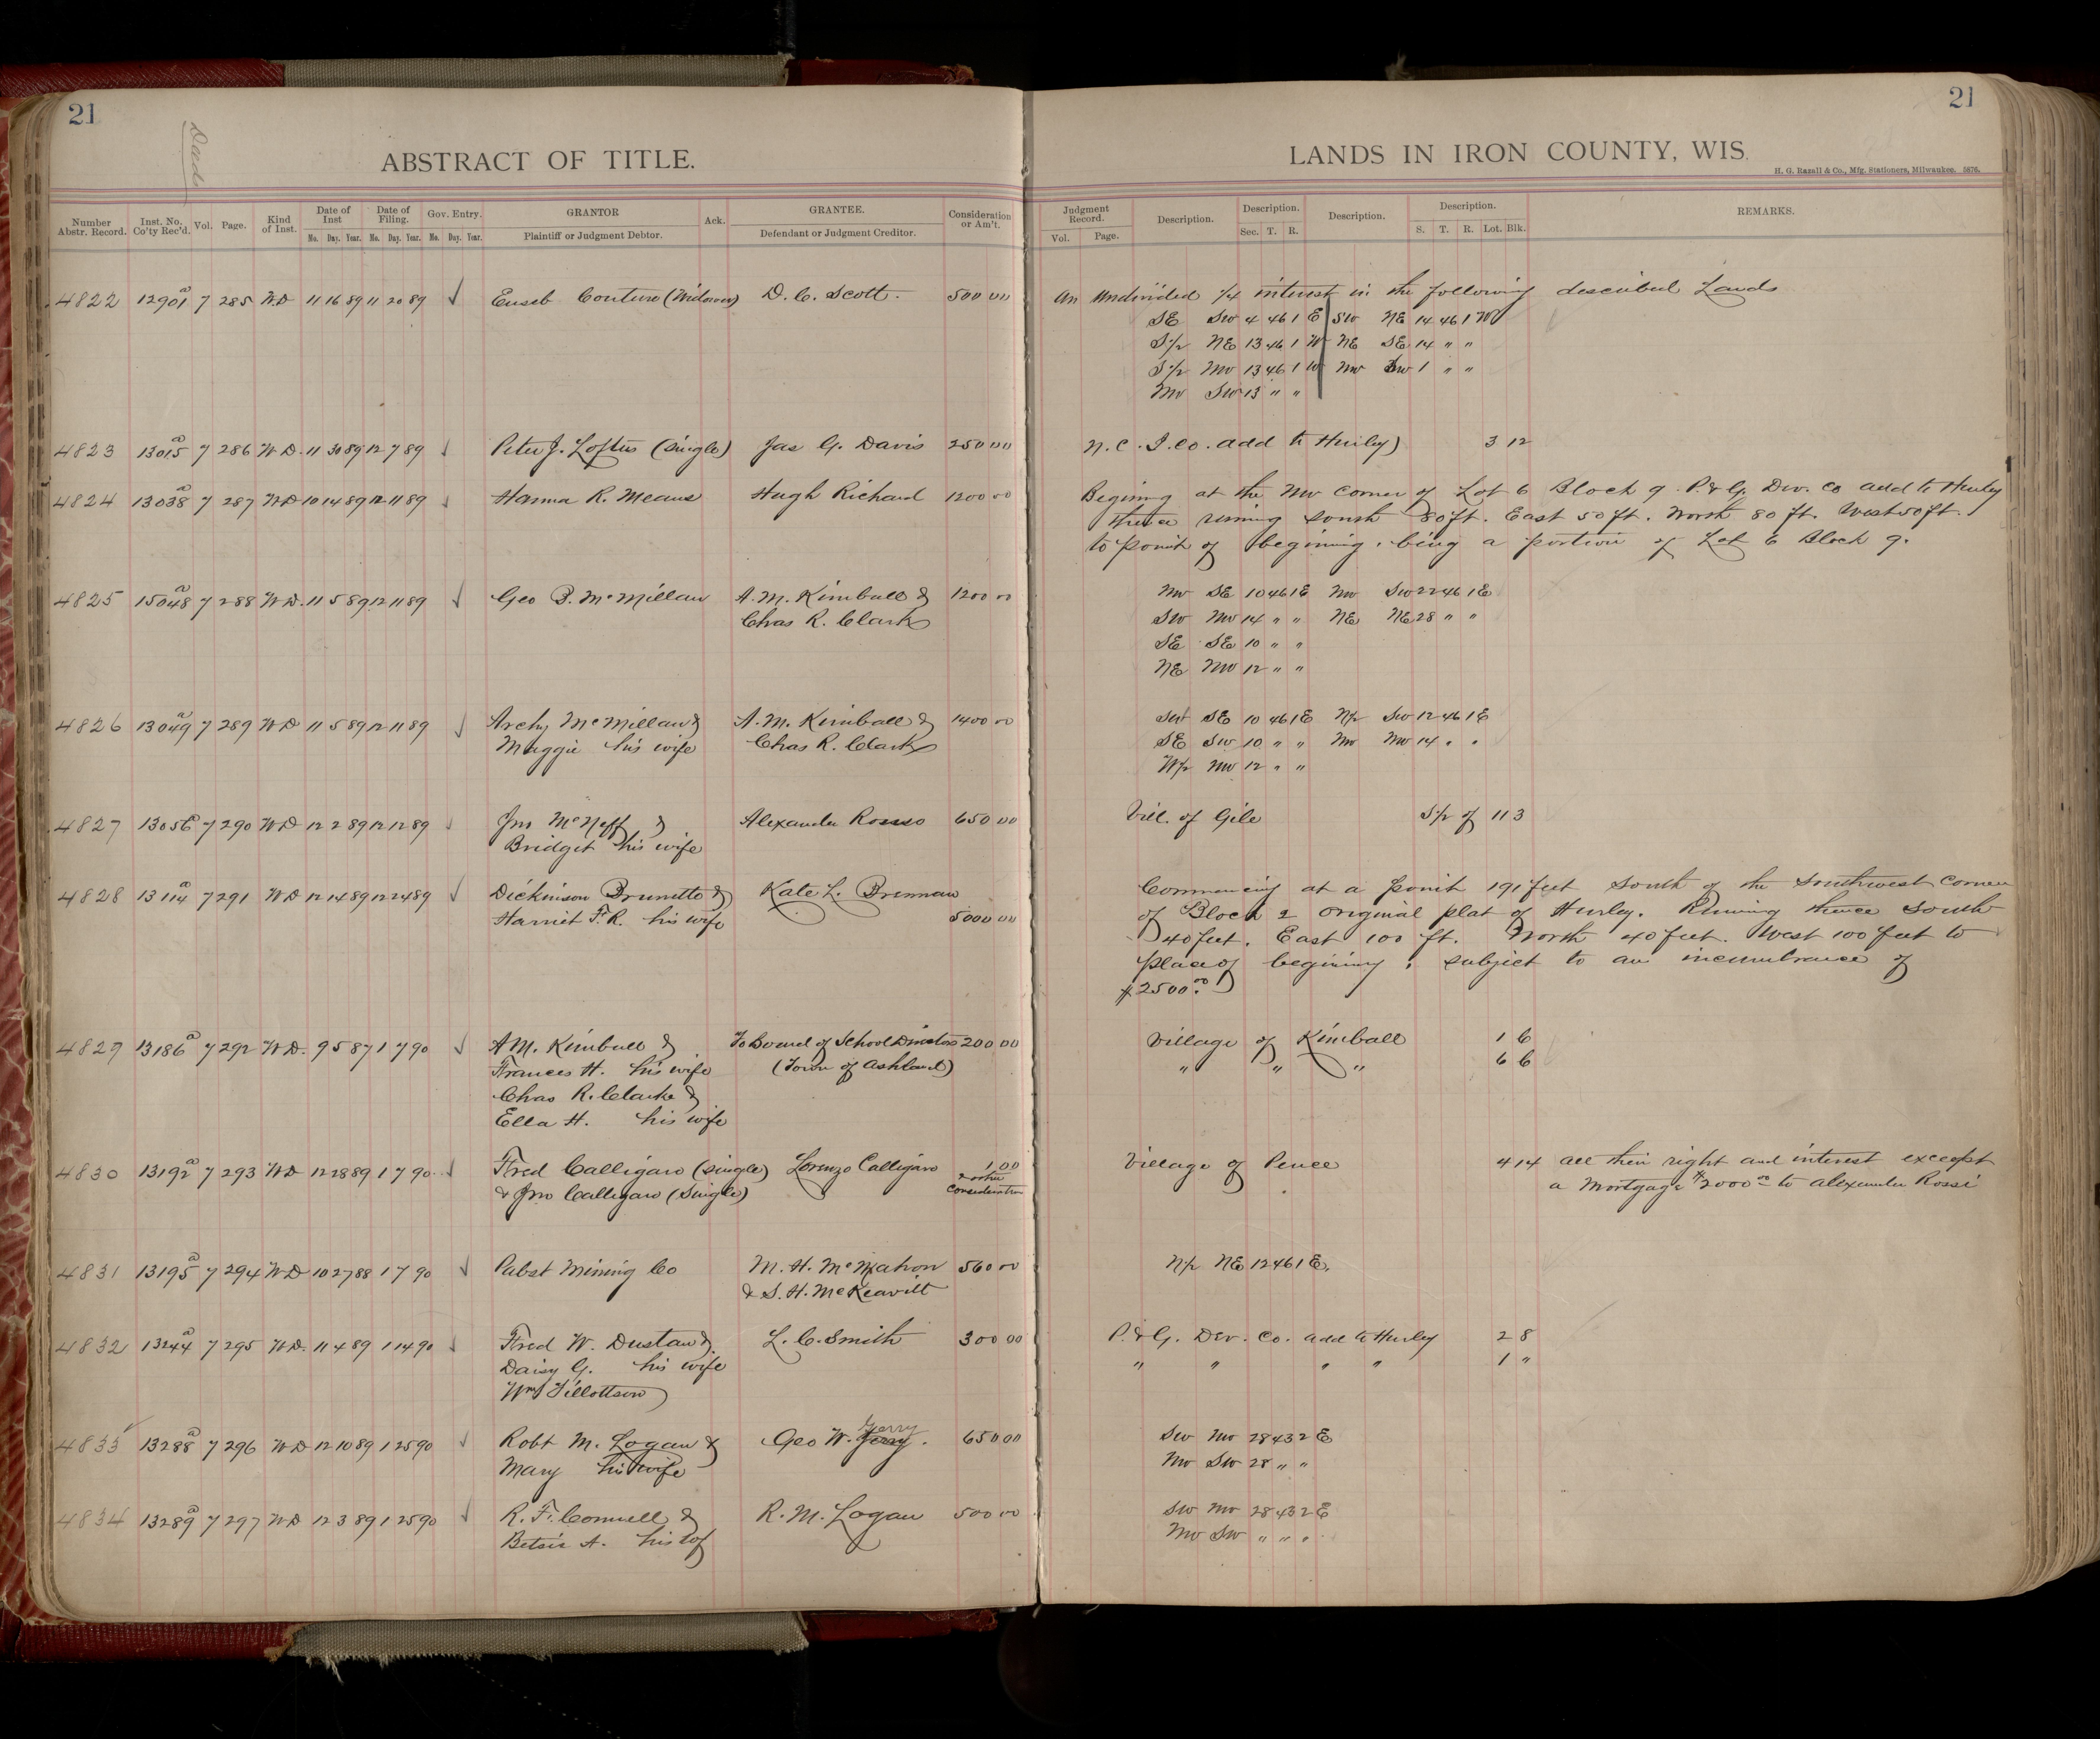 21
Deeds
ABSTRACT OF TITLE.
Number Abstr. Record. Inst. No. Co'ty Rec'd. Vol. Page. Kind of Inst. Date of Inst No. Day. Year. Date of Filing. No. Day. Year. Gov. Entry. No. Day. Year. GRANTOR Plaintiff or Judgment Debtor. Ack. GRANTEE. Defendant or Judgment Creditor. Consideration or Am't.
4822 12901 a 7 285 WD 11 16 89 11 20 89 ✓ Euseb Couture (Widower) D. C. Scott. 500 00
4823 13015 a 7 286 W D. 11 30 89 12 7 89 ✓ Peter J. Loftus (Single) Jas G. Davis 250 00
4824 13038 a 7 287 WD 10 14 89 12 11 89 ✓ Hanna R. Means Hugh Richard 1200 00
4825 15048 a 7 288 W D. 11 5 89 12 11 89 ✓ Geo B. McMillan A. M. Kimball & 1200 00
Chas R. Clark
4826 13049 a 7 289 W D 11 5 89 12 11 89 ✓ Archy McMillan & A. M. Kimball & 1400 00
Maggie his wife Chas R. Clark
4827 13056 a 7 290 W D 12 2 89 12 12 89 ✓ Jno McNeff & Alexander Rosso 650 00
Bridget his wife
4828 13114 a 7 291 W D 12 14 89 12 24 89 ✓ Dickinson Brunette & Kate L. Brennan
Harriet F. R. his wife 5000 00
4829 13186 a 7 292 W D. 9 5 87 1 7 90 ✓ A M. Kimball & To Board of School Directors 200 00
Frances H. his wife (Town of Ashland)
Chas R. Clarke &
Ella H. his wife
4830 13192 a 7 293 WD 12 28 89 1 7 90 ✓ Fred Calligaro (single) Lorenzo Calligaro 1,00
& Jno Calligaro (Single) & other
consideration
4831 13195 a 7 294 W D 10 27 88 1 7 90 ✓ Pabst Mining Co M. H. McMahon 560 00
& S. H. McKeavitt
4832 13244 a 7 295 W D. 11 4 89 1 14 90 ✓ Fred W. Dustan & L. C. Smith 300 00
Daisy G. his wife
Wm Tillottson
4833 13288 a 7 296 W D 12 10 89 1 25 90 ✓ Robt M. Logan & Geo W. Jerry. 650 00
Mary his wife
4834 13289 a 7 297 W D 12 3 89 1 25 90 ✓ R. F. Connell & R. M. Logan 500 00
Betsie A. his wf
21
LANDS IN IRON COUNTY, WIS.
H. G. Razall & Co., Mfg. Stationers, Milwaukee. 5876.
Judgment Record. Vol. Page. Description. Description. Sec. T. R. Description. Description. S. T. R. Lot. Blk. REMARKS.
An Undivided 1/4 interest in the following described Lands
SE SW 4 46 1 E SW NE 14 46 1 W
S1/2 NE 13 46 1 W NE SE 14 " "
S1/2 NW 13 46 1 W NW SW 1 " "
NW SW 13 " "
N. C. I. Co. add to Hurley 3 12
Begining at the NW corner of Lot 6 Block 9 P. & G. Dev. Co add to Hurley
thence runing south 80 ft. East 50 ft. North 80 ft. West 50 ft.
to point of begining, being a portion of Lot 6 Block 9.
NW SE 10 46 1 E NW SW 22 46 1 E
SW NW 14 " " NE NE 28 " "
SE SE 10 " "
NE NW 12 " "
SW SE 10 46 1 E N1/2 SW 12 46 1 E
SE SW 10 " " NW NW 14 " "
W1/2 NW 12 " "
Vill. of Gile S1/2 of 11 3
Commencing at a point 191 feet South of the Southwest Corner
of Block 2 original plat of Hurley. Runing thence South
40 feet. East 100 ft. North 40 feet. West 100 feet to
place of begining, subject to an incumbrance of
$2500.00
Village of Kimball 1 6
" " " 6 6
Village of Pence 4 14 all their right and interest except
a Mortgage $2000.00 to Alexander Rossi
N1/2 NE 12 46 1 E.
P. & G. Dev. Co. add to Hurley 2 8
" " " " 1 "
SW NW 28 43 2 E
NW SW 28 " "
SW NW 28 43 2 E
NW SW " " "